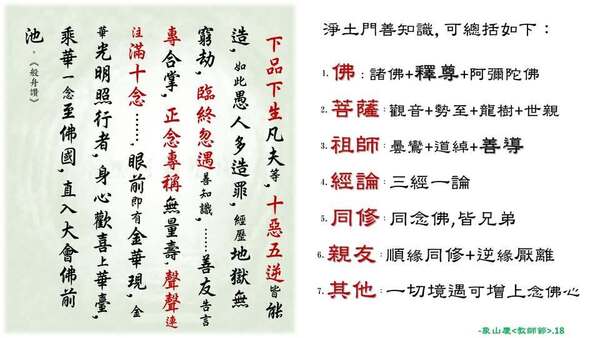 下品下生凡夫等，十惡五逆皆能
造，如此愚人多造罪，經歷地獄無
窮劫，臨終忽遇善知識，……善友告言
專合掌，正念專稱無量壽，聲聲連
注滿十念……，眼前即有金華現，金
華光明照行者，身心歡喜上華臺，
乘華一念至佛國，直入大會佛前
池。《般舟讚》
淨土門善知識，可總括如下：
1. 佛：諸佛+釋尊+阿彌陀佛
2. 菩薩：觀音+勢至+龍樹+世親
3. 祖師：曇鸞+道綽+善導
4. 經論：三經一論
5. 同修：同念佛，皆兄弟
6. 親友：順緣同修+逆緣厭離
7. 其他：一切境遇可增上念佛心
山慶<教師節>.18